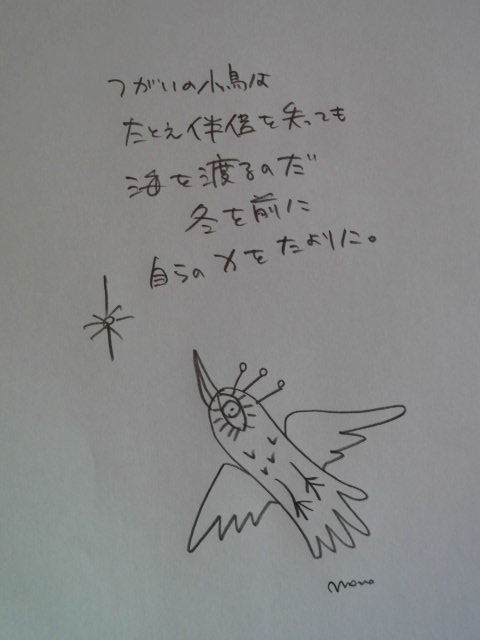 つがいの小鳥は
たとえ伴侶を失っても
海を渡るのだ
冬を前に
自らのメをたよりに。
mono